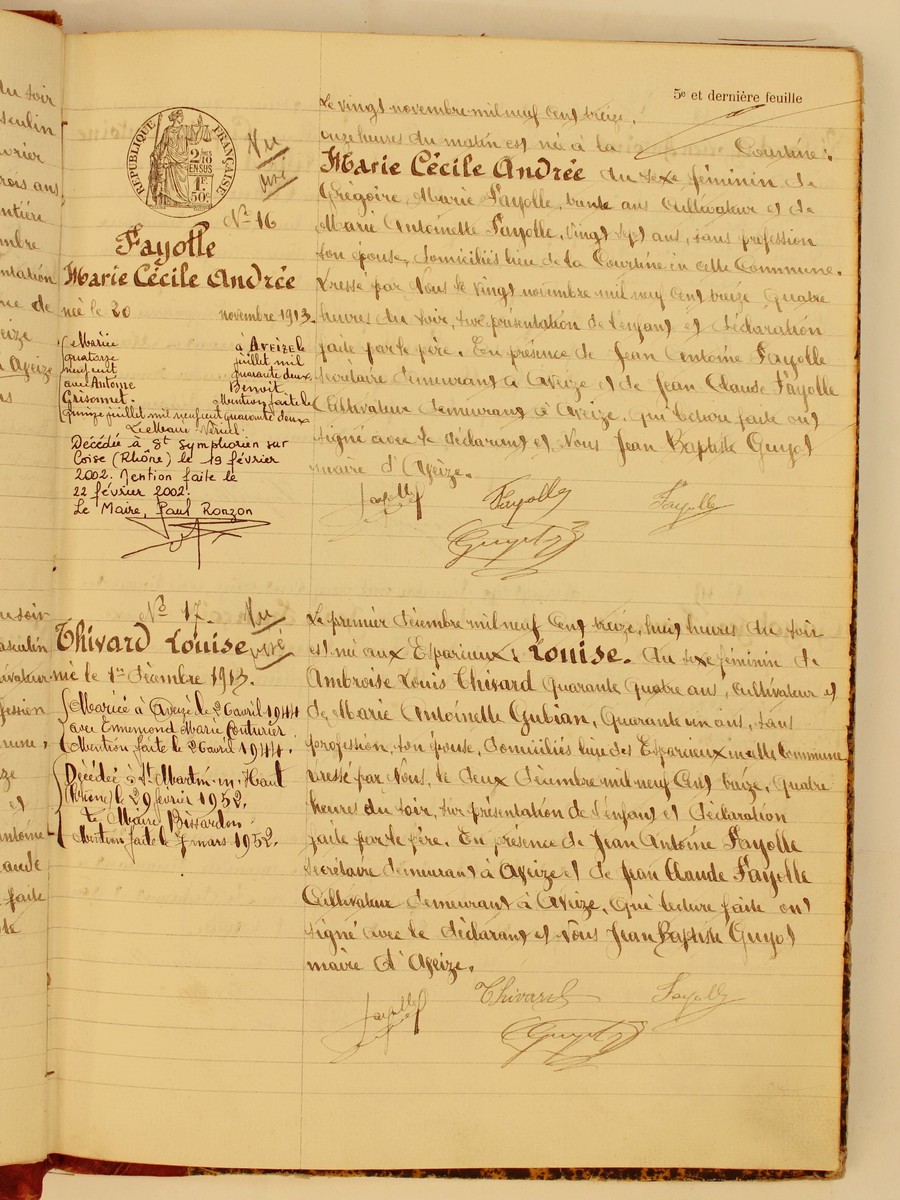 5e et dernière feuille
RÉPUBLIQUE FRANÇAISE
2/10 EN SUS
1F 50c
Vu
No 16
Fayolle
Marie Cécile Andrée
née le 20 novembre 1913.
Mariée à Aveize le
quatorze juillet mil
neuf cent quarante deux
avec Antoine Benoit
Grisonnet. Mention faite le
quinze juillet mil neuf cent quarante deux
Le Maire
Décédée à St Symphorien sur
Coise (Rhône) le 19 février
2002. Mention faite le
22 février 2002.
Le Maire, Paul Ronzon
Le vingt novembre mil neuf cent treize,
onze heures du matin est née à la Courtine :
Marie Cécile Andrée du sexe féminin de
Grégoire Marie Fayolle, trente ans cultivateur et de
Marie Antoinette Fayolle, vingt sept ans, sans profession
son épouse, domiciliés lieu de la Courtine in cette Commune.
Dressé par Nous le vingt novembre mil neuf cent treize, quatre
heures du soir, sur présentation de l'enfant et déclaration
faite par le père. En présence de Jean Antoine Fayolle
secrétaire demeurant à Aveize et de Jean Claude Fayolle
Cultivateur demeurant à Aveize, qui lecture faite ont
signé avec le déclarant et Nous Jean Baptiste Guyot
maire d'Aveize.
Fayolle Fayolle Fayolle
Guyot
No 17. Vu
Thivard Louise
née le 1er décembre 1913.
Mariée à Aveize le 26 avril 1944
avec Ennemond Marie Couturier
Mention faite le 26 avril 1944.
Décédée à St Martin-en-Haut
(Rhône) le 29 février 1952.
Le Maire Bissardon
Mention faite le 7 mars 1952.
Le premier décembre mil neuf cent treize, huit heures du soir
est née aux Esparieux : Louise. du sexe féminin de
Ambroise Louis Thivard quarante quatre ans, cultivateur et
de Marie Antoinette Gubian, quarante un ans, sans
profession, son épouse, domiciliés lieu des Esparieux in cette Commune
Dressé par Nous, le deux décembre mil neuf cent treize, quatre
heures du soir, sur présentation de l'enfant et déclaration
faite par le père. En présence de Jean Antoine Fayolle
secrétaire demeurant à Aveize et de Jean Claude Fayolle
Cultivateur demeurant à Aveize, qui lecture faite ont
signé avec le déclarant et Nous Jean Baptiste Guyot
maire d'Aveize.
Fayolle Thivard Fayolle
Guyot